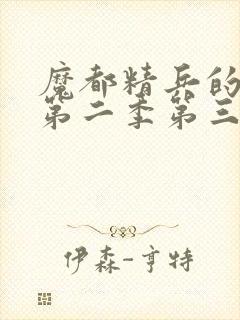 魔都精兵的
第二季第三
伊森-亨特